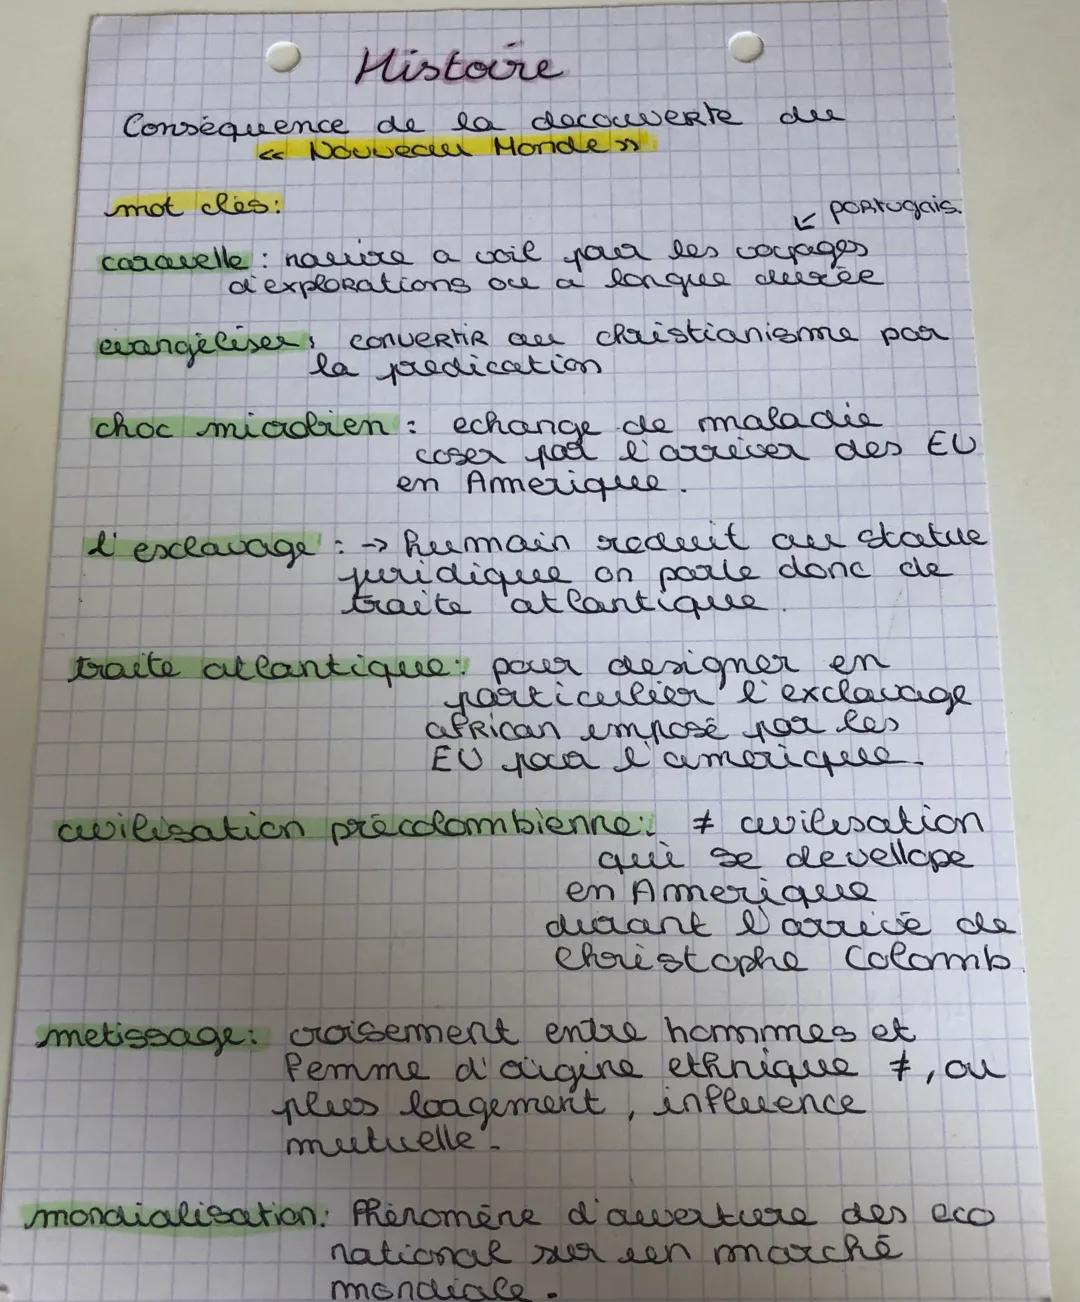 Histoire
Conséquence de la decouverte du
« Nouveau Monde »
mot clés:
↙ PORTUGAIS.
caravelle : navire a voil pour les voyages
d'explorations ou a longue durée
evangéliser : convertir au christianisme par
la predication
choc microbien : echange de maladie
coser par l'arriver des EU
en Amerique.
l'esclavage : → humain reduit au statue
juridique on parle donc de
traite atlantique.
traite atlantique : pour designer en
particulier l'exclavage
african imposé par les
EU pour l'amerique.
civilisation précolombienne : ≠ civilisation
qui se devellope
en Amerique
durant l'arrivé de
Christophe Colomb.
metissage : croisement entre hommes et
femme d'origine ethnique ≠, ou
plus loagement, influence
mutuelle.
mondialisation : Phénomène d'ouverture des eco
national sur un marché
mondiale.